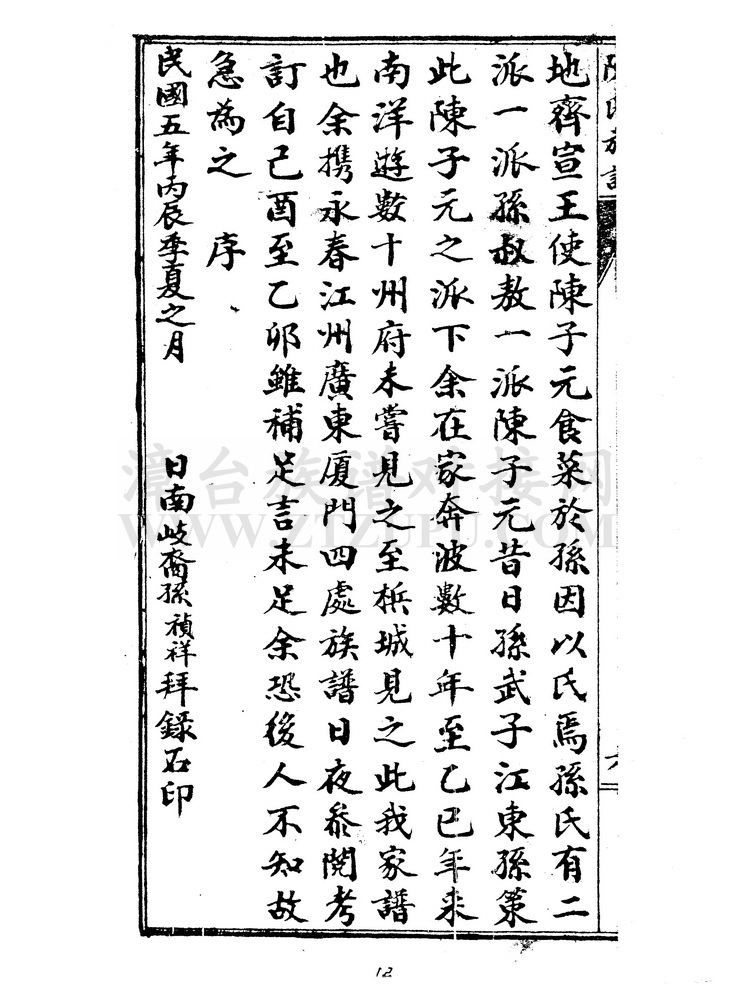 陳氏族譜
六
地齊宣王使陳子元食菜於孫因以氏焉孫氏有二
派一派孫叔敖一派陳子元昔日孫武子江東孫策
此陳子元之派下余在家奔波數十年至乙巳年來
南洋遊數十州府未嘗見之至梹城見之此我家譜
也余携永春江州廣東厦門四處族譜日夜叅閱考
訂自己酉至乙卯雖補足言未足余恐後人不知故
急為之 序
民國五年丙辰季夏之月 日南岐裔孫禎祥拜錄石印
漳台族谱对接网
WWW.ZTZUPU.COM
12